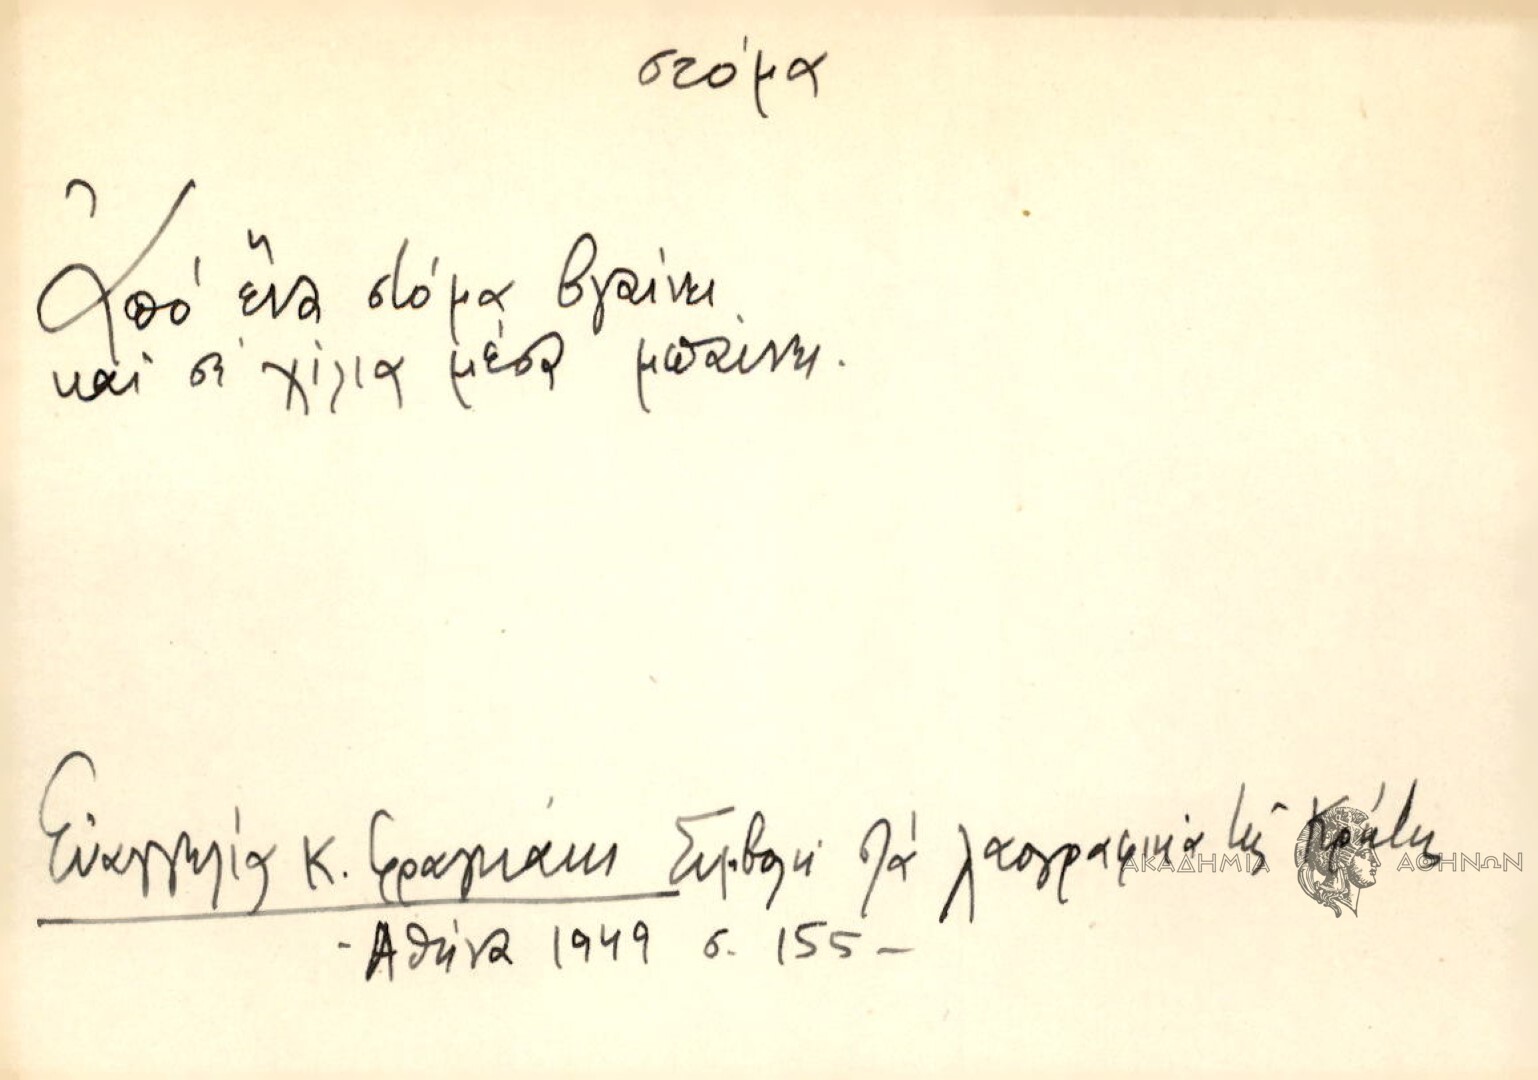 στόμα
Ἀπό ἕνα στόμα βγαίνει
καί σέ χίλια μέσα μπαίνει.
Εὐαγγελία Κ. Φραγκάκι Συμβολή στά λαογραφικά τῆς Κρήτης
ΑΚΑΔΗΜΙΑ ΑΘΗΝΩΝ
- Ἀθήνα 1949 σ. 155 -